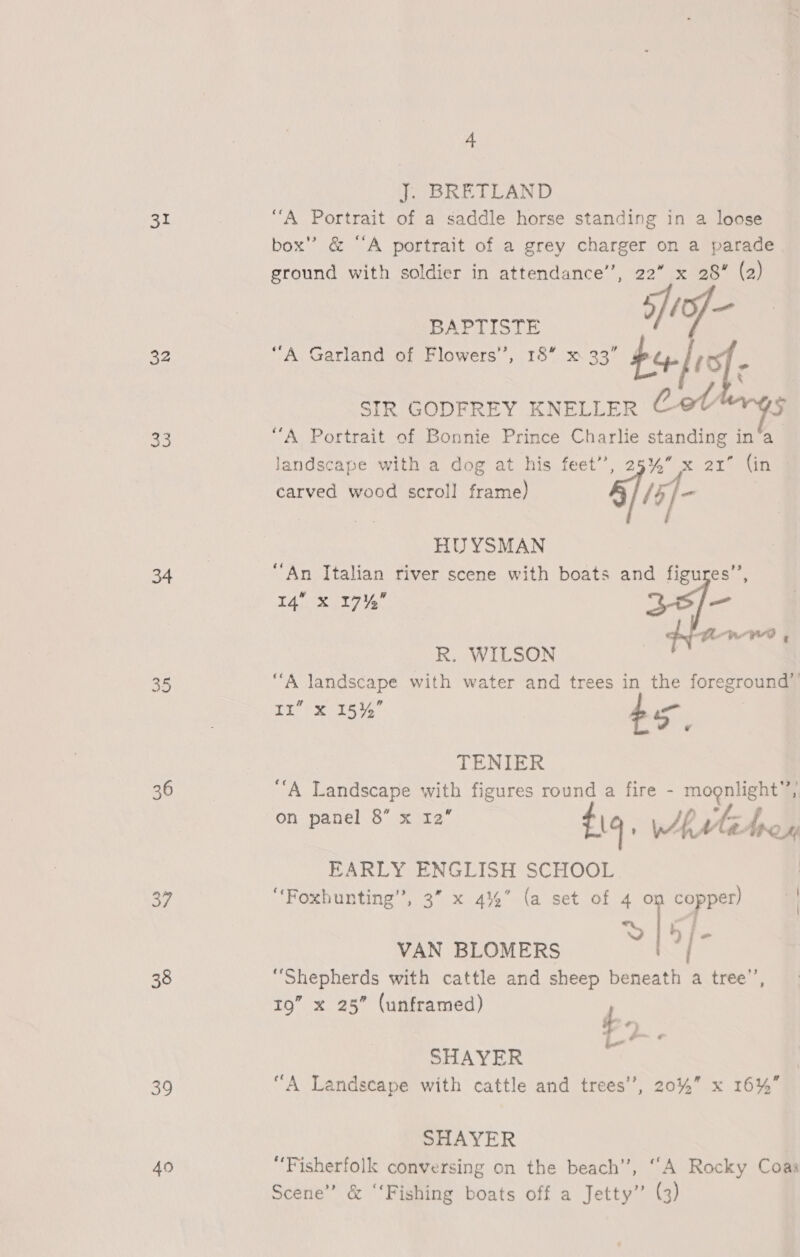 4
J. BRETLAND
31 “A Portrait of a saddle horse standing in a loose
box” & “A portrait of a grey charger on a parade
ground with soldier in attendance”, 22” x 28” (2)
5/10/-
BAPTISTE
32 “A Garland of Flowers”, 18” x 33” £4/10/-
SIR GODFREY KNELLER
33 “A Portrait of Bonnie Prince Charlie standing in a
landscape with a dog at his feet”, 25½” x 21” (in
carved wood scroll frame) /15/-
HUYSMAN
34 “An Italian river scene with boats and figures”,
14” x 17½” 35/-
R. WILSON
35 “A landscape with water and trees in the foreground”
11” x 15½” £5.
TENIER
36 “A Landscape with figures round a fire - moonlight”,
on panel 8” x 12” £19.
EARLY ENGLISH SCHOOL
37 “Foxhunting”, 3” x 4½” (a set of 4 on copper)
VAN BLOMERS
38 “Shepherds with cattle and sheep beneath a tree”,
19” x 25” (unframed)
£2.
SHAYER
39 “A Landscape with cattle and trees”, 20½” x 16½”
SHAYER
40 “Fisherfolk conversing on the beach”, “A Rocky Coas
Scene” & “Fishing boats off a Jetty” (3)